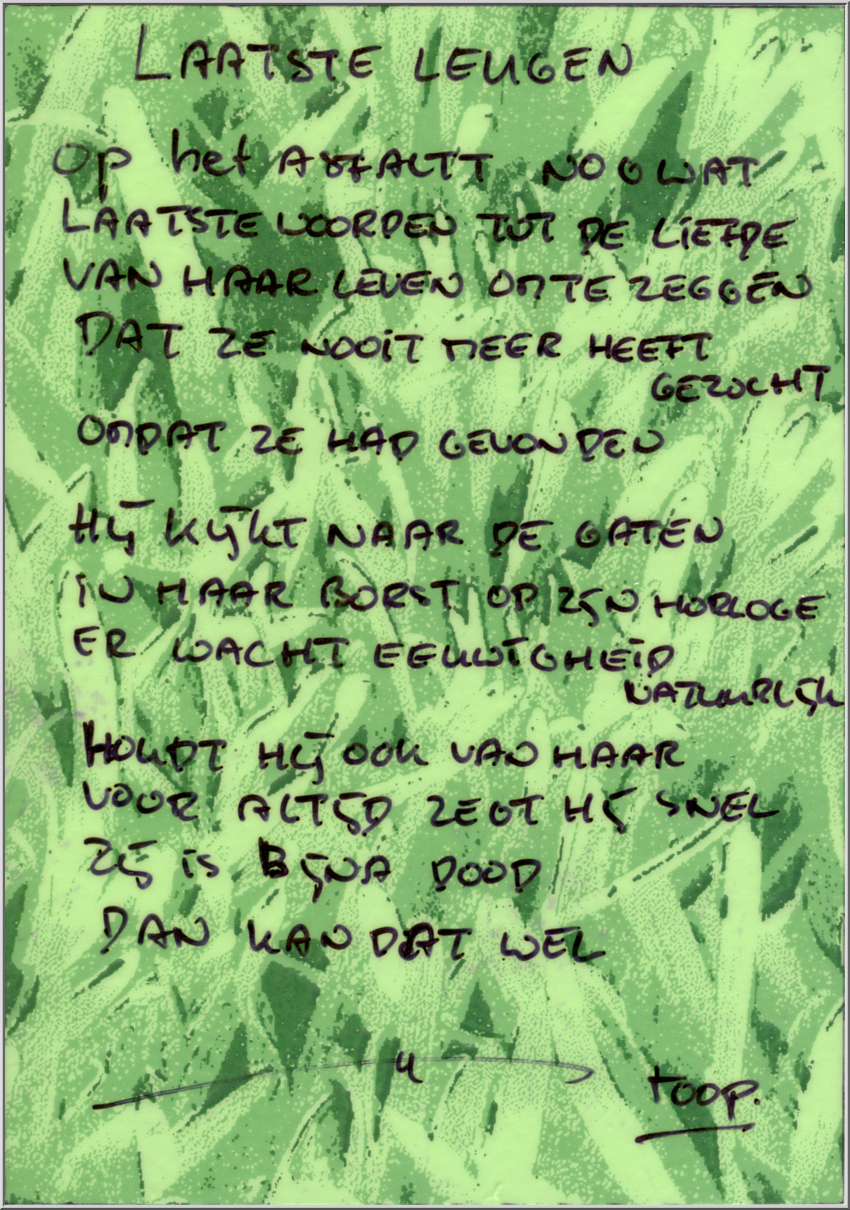 LAATSTE LEUGEN
Op het ASFALTT NOG WAT
LAATSTE WOORDEN TOT DE LIEFDE
VAN HAAR LEVEN OM TE ZEGGEN
DAT ZE NOOIT MEER HEEFT
GEZOCHT
OMDAT ZE HAD GEVONDEN
HIJ KIJKT NAAR DE GATEN
IN HAAR BORST OP ZIJN HORLOGE
ER WACHT EEUWIGHEID
NATUURLIJK
HOUDT HIJ OOK VAN HAAR
VOOR ALTIJD ZEGT HIJ SNEL
ZIJ IS BIJNA DOOD
DAN KAN DAT WEL
TOOP.